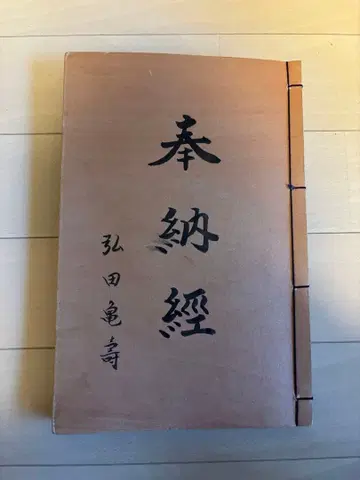 奉納經
弘田亀壽